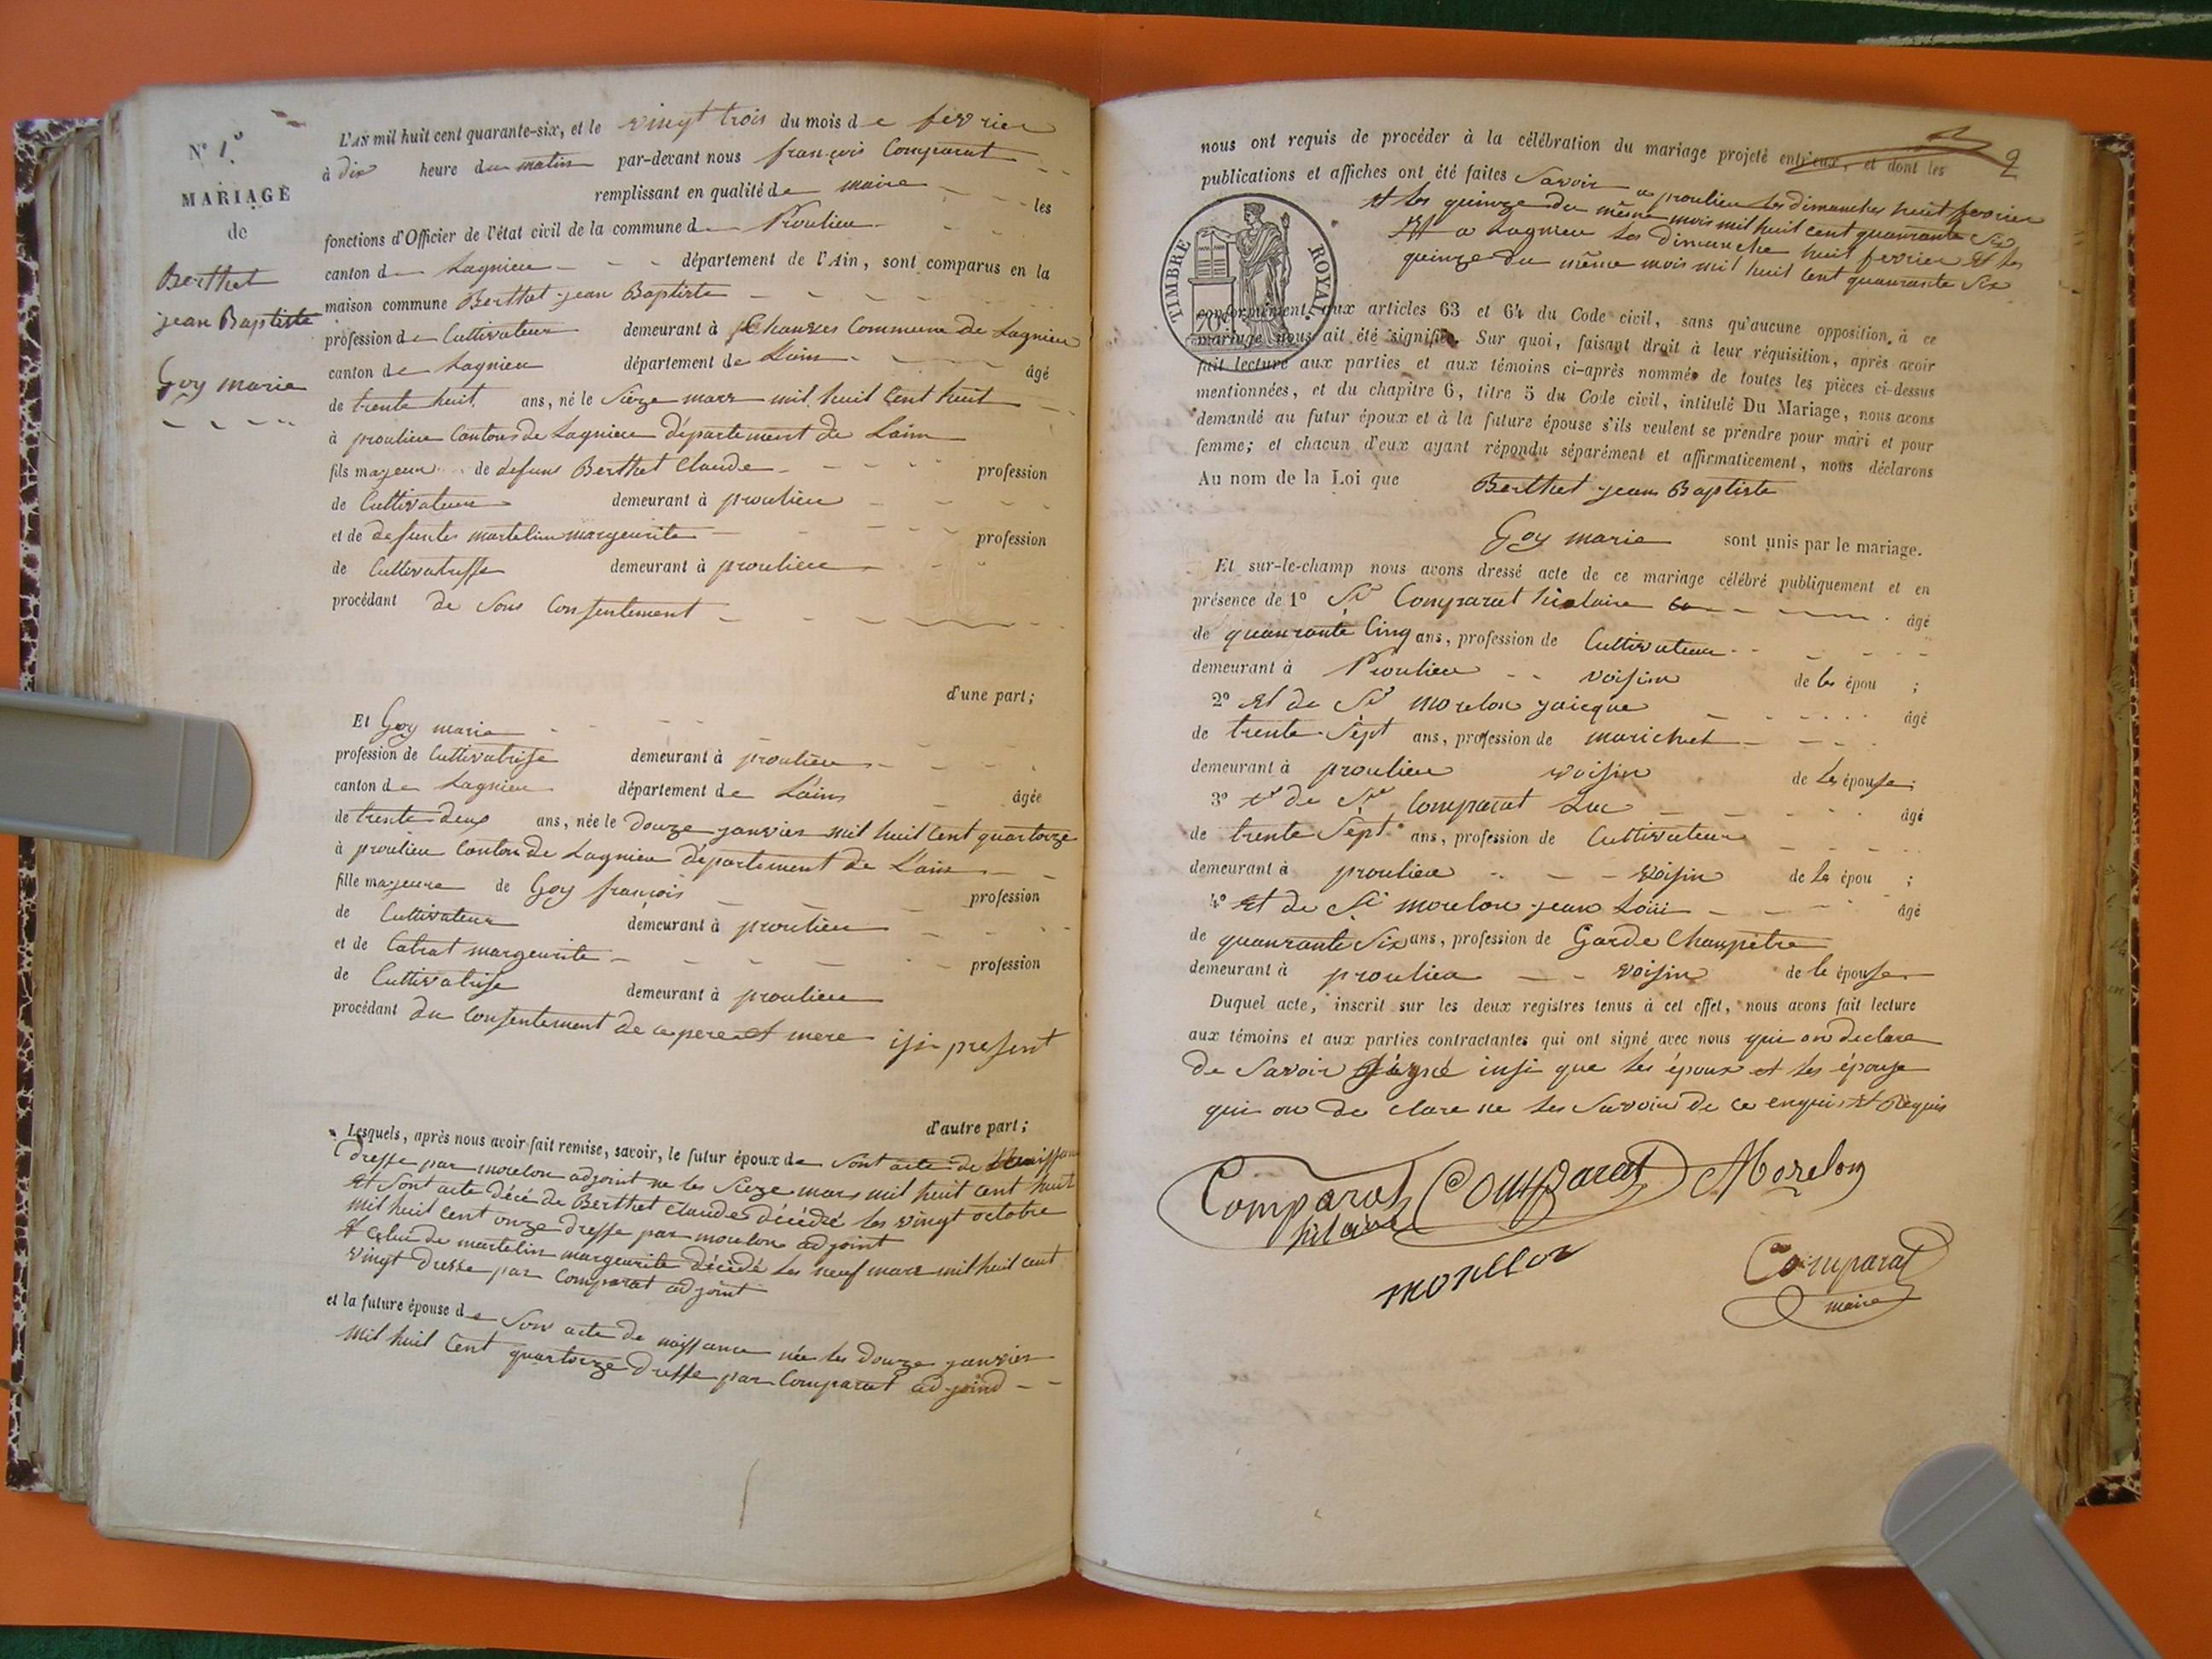 N° 1°
MARIAGE
de
Berthet
jean Baptiste
Goy marie
L'AN mil huit cent quarante-six, et le vingt trois du mois de fevrier
à dix heure du matin par-devant nous françois Comparat
remplissant en qualité de maire les
fonctions d'Officier de l'état civil de la commune de Proulieu
canton de Lagnieu département de l'Ain, sont comparus en la
maison commune Berthet jean Baptiste
profession de Cultivateur demeurant à Chanves Commune de Lagnieu
canton de Lagnieu département de Lain âgé
de trente huit ans, né le Sieze mars mil huit Cent huit
à proulieu Canton de Lagnieu département de Lain
fils majeur de defunt Berthet Claude profession
de Cultivateur demeurant à proulieu
et de defunte martelin margeurite profession
de Cultivatrisse demeurant à proulieu
procédant de Sons Consentement
d'une part;
Et Goy marie
profession de Cultivatrise demeurant à proulieu
canton de Lagnieu département de L'ain âgée
de trente deux ans, née le Douze janvier mil huit Cent quartorze
à proulieu Canton de Lagnieu département de L'ain
fille majeure de Goy françois profession
de Cultivateur demeurant à proulieu
et de Catrat margeurite profession
de Cultivatrise demeurant à proulieu
procédant du Consentement de ce pere et mere isi present
d'autre part;
Lesquels, après nous avoir fait remise, savoir, le futur époux de Sont acte de
Dresse par morelon adjoint ne les Sieze mars mil huit Cent huit
Et Sont acte décé de Berthet Claude décédé les vingt octobre
mil huit Cent onze Dresse par morelon adjoint
& Celui de martelin margeurite décédé les neuf mars mil huit cent
vingt Dresse par Comparat adjoint
et la future épouse de Son acte de naissance née les Douze janvier
mil huit Cent quartorze Dresse par Comparat adjoind
2
nous ont requis de procéder à la célébration du mariage projeté entr'eux, et dont les
publications et affiches ont été faites Savoir a proulieu les dimanches huit fevrier
et les quinze du même mois mil huit cent quanrante Six
Et a Lagnieu les dimanche huit fevrier et les
quinze du même mois mil huit Cent quanrante Six
TIMBRE ROYAL
70
conformément aux articles 63 et 64 du Code civil, sans qu'aucune opposition à ce
mariage nous ait été signifiée. Sur quoi, faisant droit à leur réquisition, après avoir
fait lecture aux parties et aux témoins ci-après nommés de toutes les pièces ci-dessus
mentionnées, et du chapitre 6, titre 5 du Code civil, intitulé Du Mariage, nous avons
demandé au futur époux et à la future épouse s'ils veulent se prendre pour mari et pour
femme; et chacun d'eux ayant répondu séparément et affirmativement, nous déclarons
Au nom de la Loi que Berthet jean Baptiste
Goy marie sont unis par le mariage.
Et sur-le-champ nous avons dressé acte de ce mariage célébré publiquement et en
présence de 1° Sr Comparat hilaire âgé
de quanrante Cinq ans, profession de Cultivateur
demeurant à Proulieu voisin de les épou ;
2° Et de Sr morelon jaicque âgé
de trente Sept ans, profession de marichet
demeurant à proulieu voisin de Les épouse;
3° et de Sr Comparat Luc âgé
de trente Sept ans, profession de Cultivateur
demeurant à proulieu voisin de La épou ;
4° Et de Sr morelon jean Loui âgé
de quanrante Six ans, profession de Garde Chanpètre
demeurant à proulieu voisin de le épouse
Duquel acte, inscrit sur les deux registres tenus à cet effet, nous avons fait lecture
aux témoins et aux parties contractantes qui ont signé avec nous qui on declare
de Savoir signé insi que les époux et les épouse
qui on de clare ne les Savoir de ce enquis et Requis
Comparat Comparat Morelon
hilaire
morelon
Comparat
maire